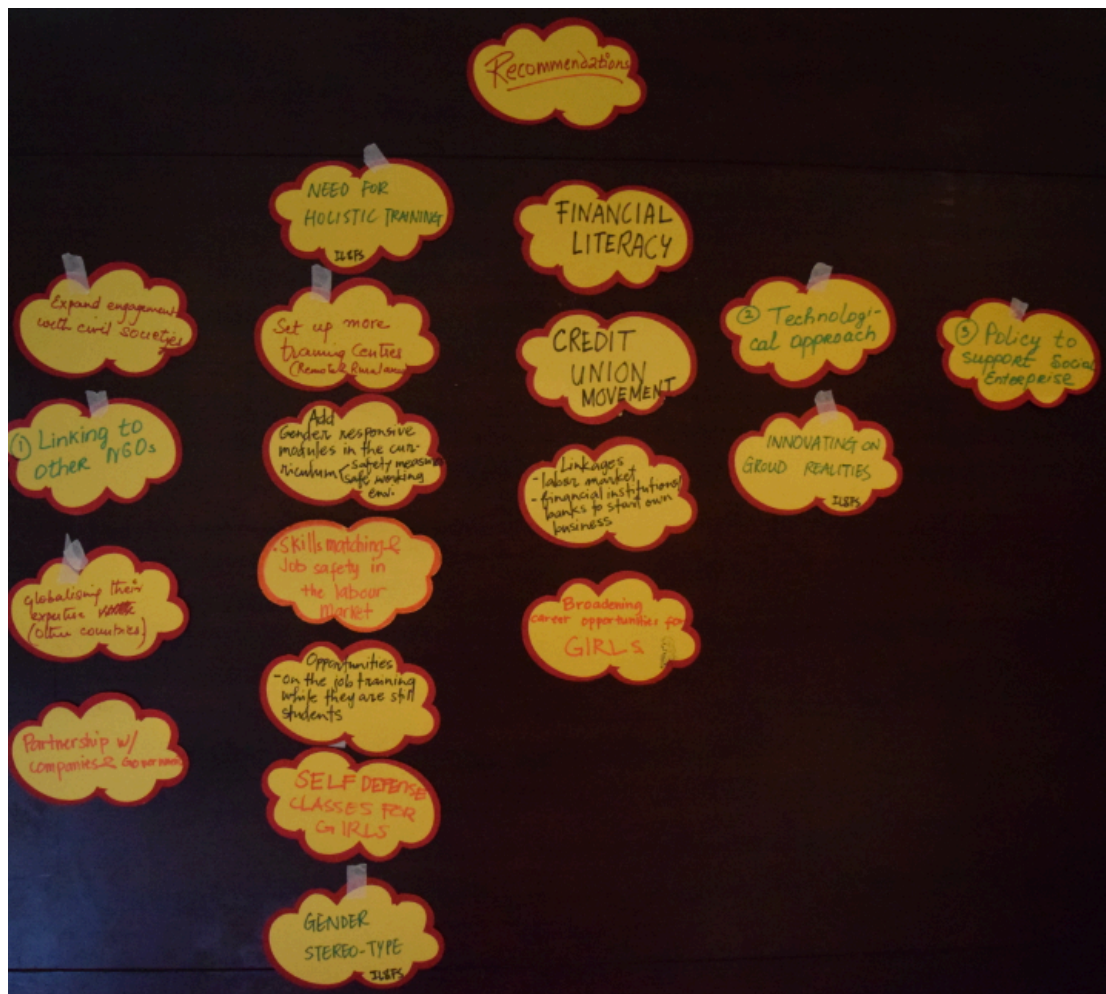 Recommendations
Expand engagement
with civil societies
① Linking to
other NGOs
Globalising their
expertise
(other countries)
Partnership w/
companies &
NEED FOR
HOLISTIC TRAINING
IL&FS
Set up more
training centres
(Remote & Rural area)
Add
Gender responsive
modules in the cur-
riculum - safety measure
safe working
env.
. Skills matching &
Job safety in
the labour
market
Opportunities
- on the job training
while they are still
students
SELF DEFENSE
CLASSES FOR
GIRLS
GENDER
STEREO-TYPE
IL&FS
FINANCIAL
LITERACY
CREDIT
UNION
MOVEMENT
Linkages
- labour market
- financial institutions/
banks to start own
business
Broadening
career opportunities for
GIRLS
② Technologi-
cal approach
INNOVATING ON
GROUD REALITIES
IL&FS
③ Policy to
support Social
Enterprise